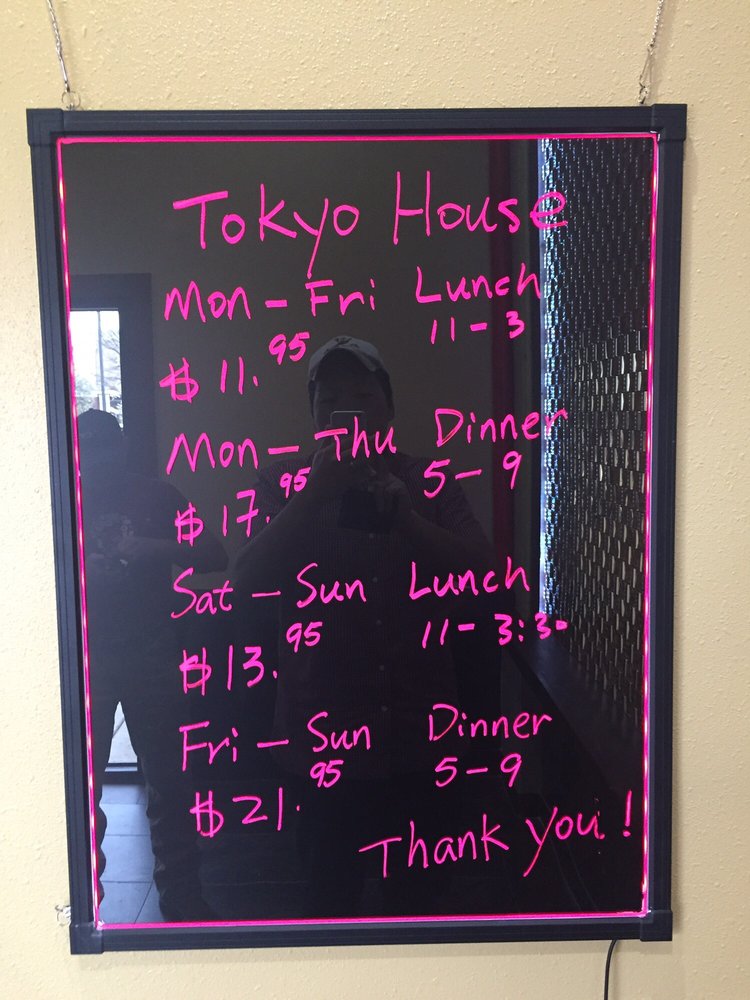 Tokyo House
Mon - Fri Lunch
$11.95 11-3
Mon - Thu Dinner
$17.95 5-9
Sat - Sun Lunch
$13.95 11-3:30
Fri - Sun Dinner
$21.95 5-9
Thank you!